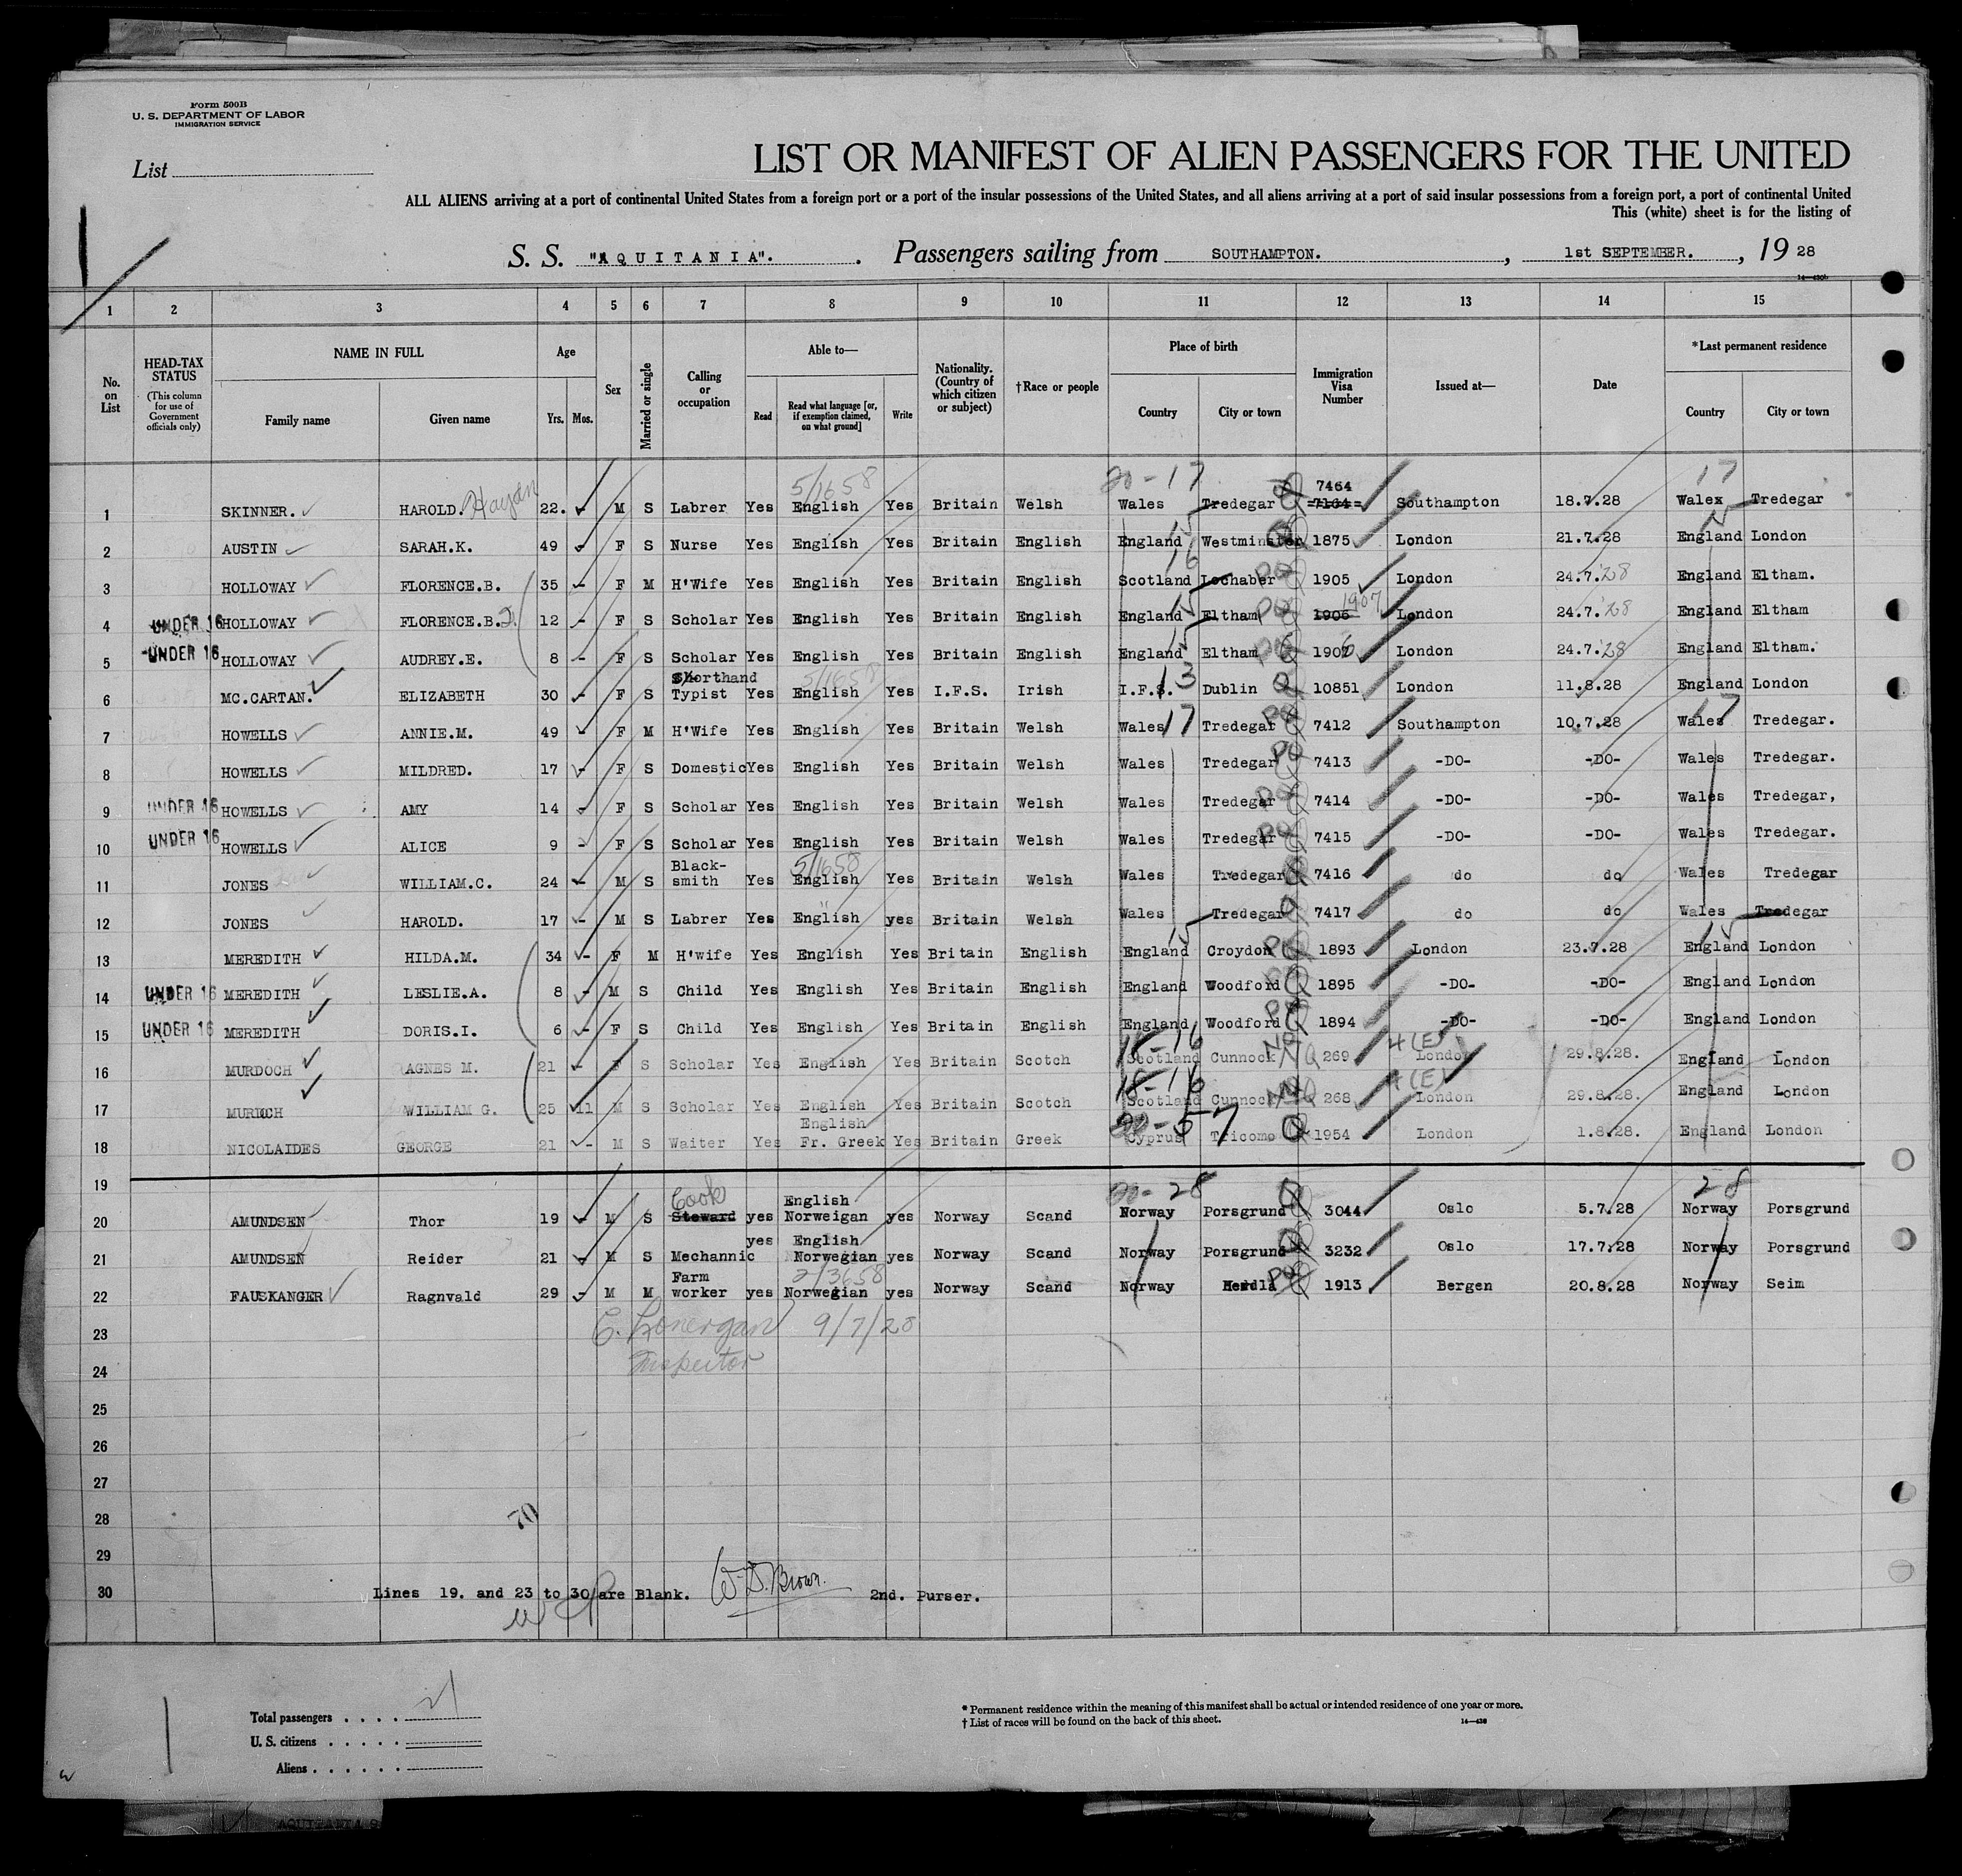 Form 500B
U. S. DEPARTMENT OF LABOR
IMMIGRATION SERVICE
List
LIST OR MANIFEST OF ALIEN PASSENGERS FOR THE UNITED
ALL ALIENS arriving at a port of continental United States from a foreign port or a port of the insular possessions of the United States, and all aliens arriving at a port of said insular possessions from a foreign port, a port of continental United
This (white) sheet is for the listing of
S. S. "AQUITANIA". Passengers sailing from SOUTHAMPTON. , 1st SEPTEMBER. , 19 28
1 2 3 4 5 6 7 8 9 10 11 12 13 14 15
No. on List
HEAD-TAX STATUS (This column for use of Government officials only)
NAME IN FULL Family name Given name
Age Yrs. Mos.
Sex
Married or single
Calling or occupation
Able to— Read Read what language [or, if exemption claimed, on what ground] Write
Nationality. (Country of which citizen or subject)
†Race or people
Place of birth Country City or town
Immigration Visa Number
Issued at—
Date
*Last permanent residence Country City or town
5/1658 20-17 7464 17
1 SKINNER. HAROLD. 22. - M S Labrer Yes English Yes Britain Welsh Wales Tredegar 7164 Southampton 18.7.28 Walex Tredegar
15 15
2 AUSTIN SARAH.K. 49 - F S Nurse Yes English Yes Britain English England Westminster 1875 London 21.7.28 England London
16
3 HOLLOWAY FLORENCE.B. 35 - F M H'Wife Yes English Yes Britain English Scotland Lochaber 1905 London 24.7.28 England Eltham.
15 1907
4 UNDER 16 HOLLOWAY FLORENCE.B.J. 12 - F S Scholar Yes English Yes Britain English England Eltham 1906 London 24.7.28 England Eltham
15
5 UNDER 16 HOLLOWAY AUDREY.E. 8 - F S Scholar Yes English Yes Britain English England Eltham 1906 London 24.7.28 England Eltham.
Shorthand 5/1658 13
6 MC.CARTAN. ELIZABETH 30 - F S Typist Yes English Yes I.F.S. Irish I.F.S. Dublin 10851 London 11.8.28 England London
17 17
7 HOWELLS ANNIE.M. 49 - F M H'Wife Yes English Yes Britain Welsh Wales Tredegar 7412 Southampton 10.7.28 Wales Tredegar.
8 HOWELLS MILDRED. 17 - F S Domestic Yes English Yes Britain Welsh Wales Tredegar 7413 -DO- -DO- Wales Tredegar.
9 UNDER 16 HOWELLS AMY 14 - F S Scholar Yes English Yes Britain Welsh Wales Tredegar 7414 -DO- -DO- Wales Tredegar,
10 UNDER 16 HOWELLS ALICE 9 - F S Scholar Yes English Yes Britain Welsh Wales Tredegar 7415 -DO- -DO- Wales Tredegar.
Black- 5/1658
11 JONES WILLIAM.C. 24 - M S smith Yes English Yes Britain Welsh Wales Tredegar 7416 do do Wales Tredegar
12 JONES HAROLD. 17 - M S Labrer Yes English yes Britain Welsh Wales Tredegar 7417 do do Wales Tredegar
15 15
13 MEREDITH HILDA.M. 34 - F M H'wife Yes English Yes Britain English England Croydon 1893 London 23.7.28 England London
14 UNDER 16 MEREDITH LESLIE.A. 8 - M S Child Yes English Yes Britain English England Woodford 1895 -DO- -DO- England London
15 UNDER 16 MEREDITH DORIS.I. 6 - F S Child Yes English Yes Britain English England Woodford 1894 -DO- -DO- England London
16 4(E)
16 MURDOCH AGNES M. 21 - F S Scholar Yes English Yes Britain Scotch Scotland Cunnock NQ 269 London 29.8.28. England London
16 4(E)
17 MURDOCH WILLIAM G. 25 11 M S Scholar Yes English Yes Britain Scotch Scotland Cunnock NQ 268 London 29.8.28. England London
English 20-57
18 NICOLAIDES GEORGE 21 - M S Waiter Yes Fr. Greek Yes Britain Greek Cyprus Tricomo 1954 London 1.8.28. England London
19
Cook English 20-28 28
20 AMUNDSEN Thor 19 - M S Steward yes Norweigan yes Norway Scand Norway Porsgrund 3044 Oslo 5.7.28 Norway Porsgrund
yes English
21 AMUNDSEN Reider 21 - M S Mechannic Norwegian yes Norway Scand Norway Porsgrund 3232 Oslo 17.7.28 Norway Porsgrund
Farm 2/3658
22 FAUSKANGER Ragnvald 29 - M M worker yes Norwegian yes Norway Scand Norway Herdla 1913 Bergen 20.8.28 Norway Seim
23 C. Lonergan 9/7/28
24 Inspector
25
26
27
28 70
29
30 Lines 19. and 23 to 30 are Blank. W.D. Brown. 2nd. Purser.
Total passengers . . . . 21
U. S. citizens . . . . .
Aliens . . . . . .
* Permanent residence within the meaning of this manifest shall be actual or intended residence of one year or more.
† List of races will be found on the back of this sheet.
14—430